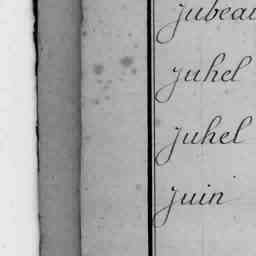 jubeau
juhel
juhel
juin